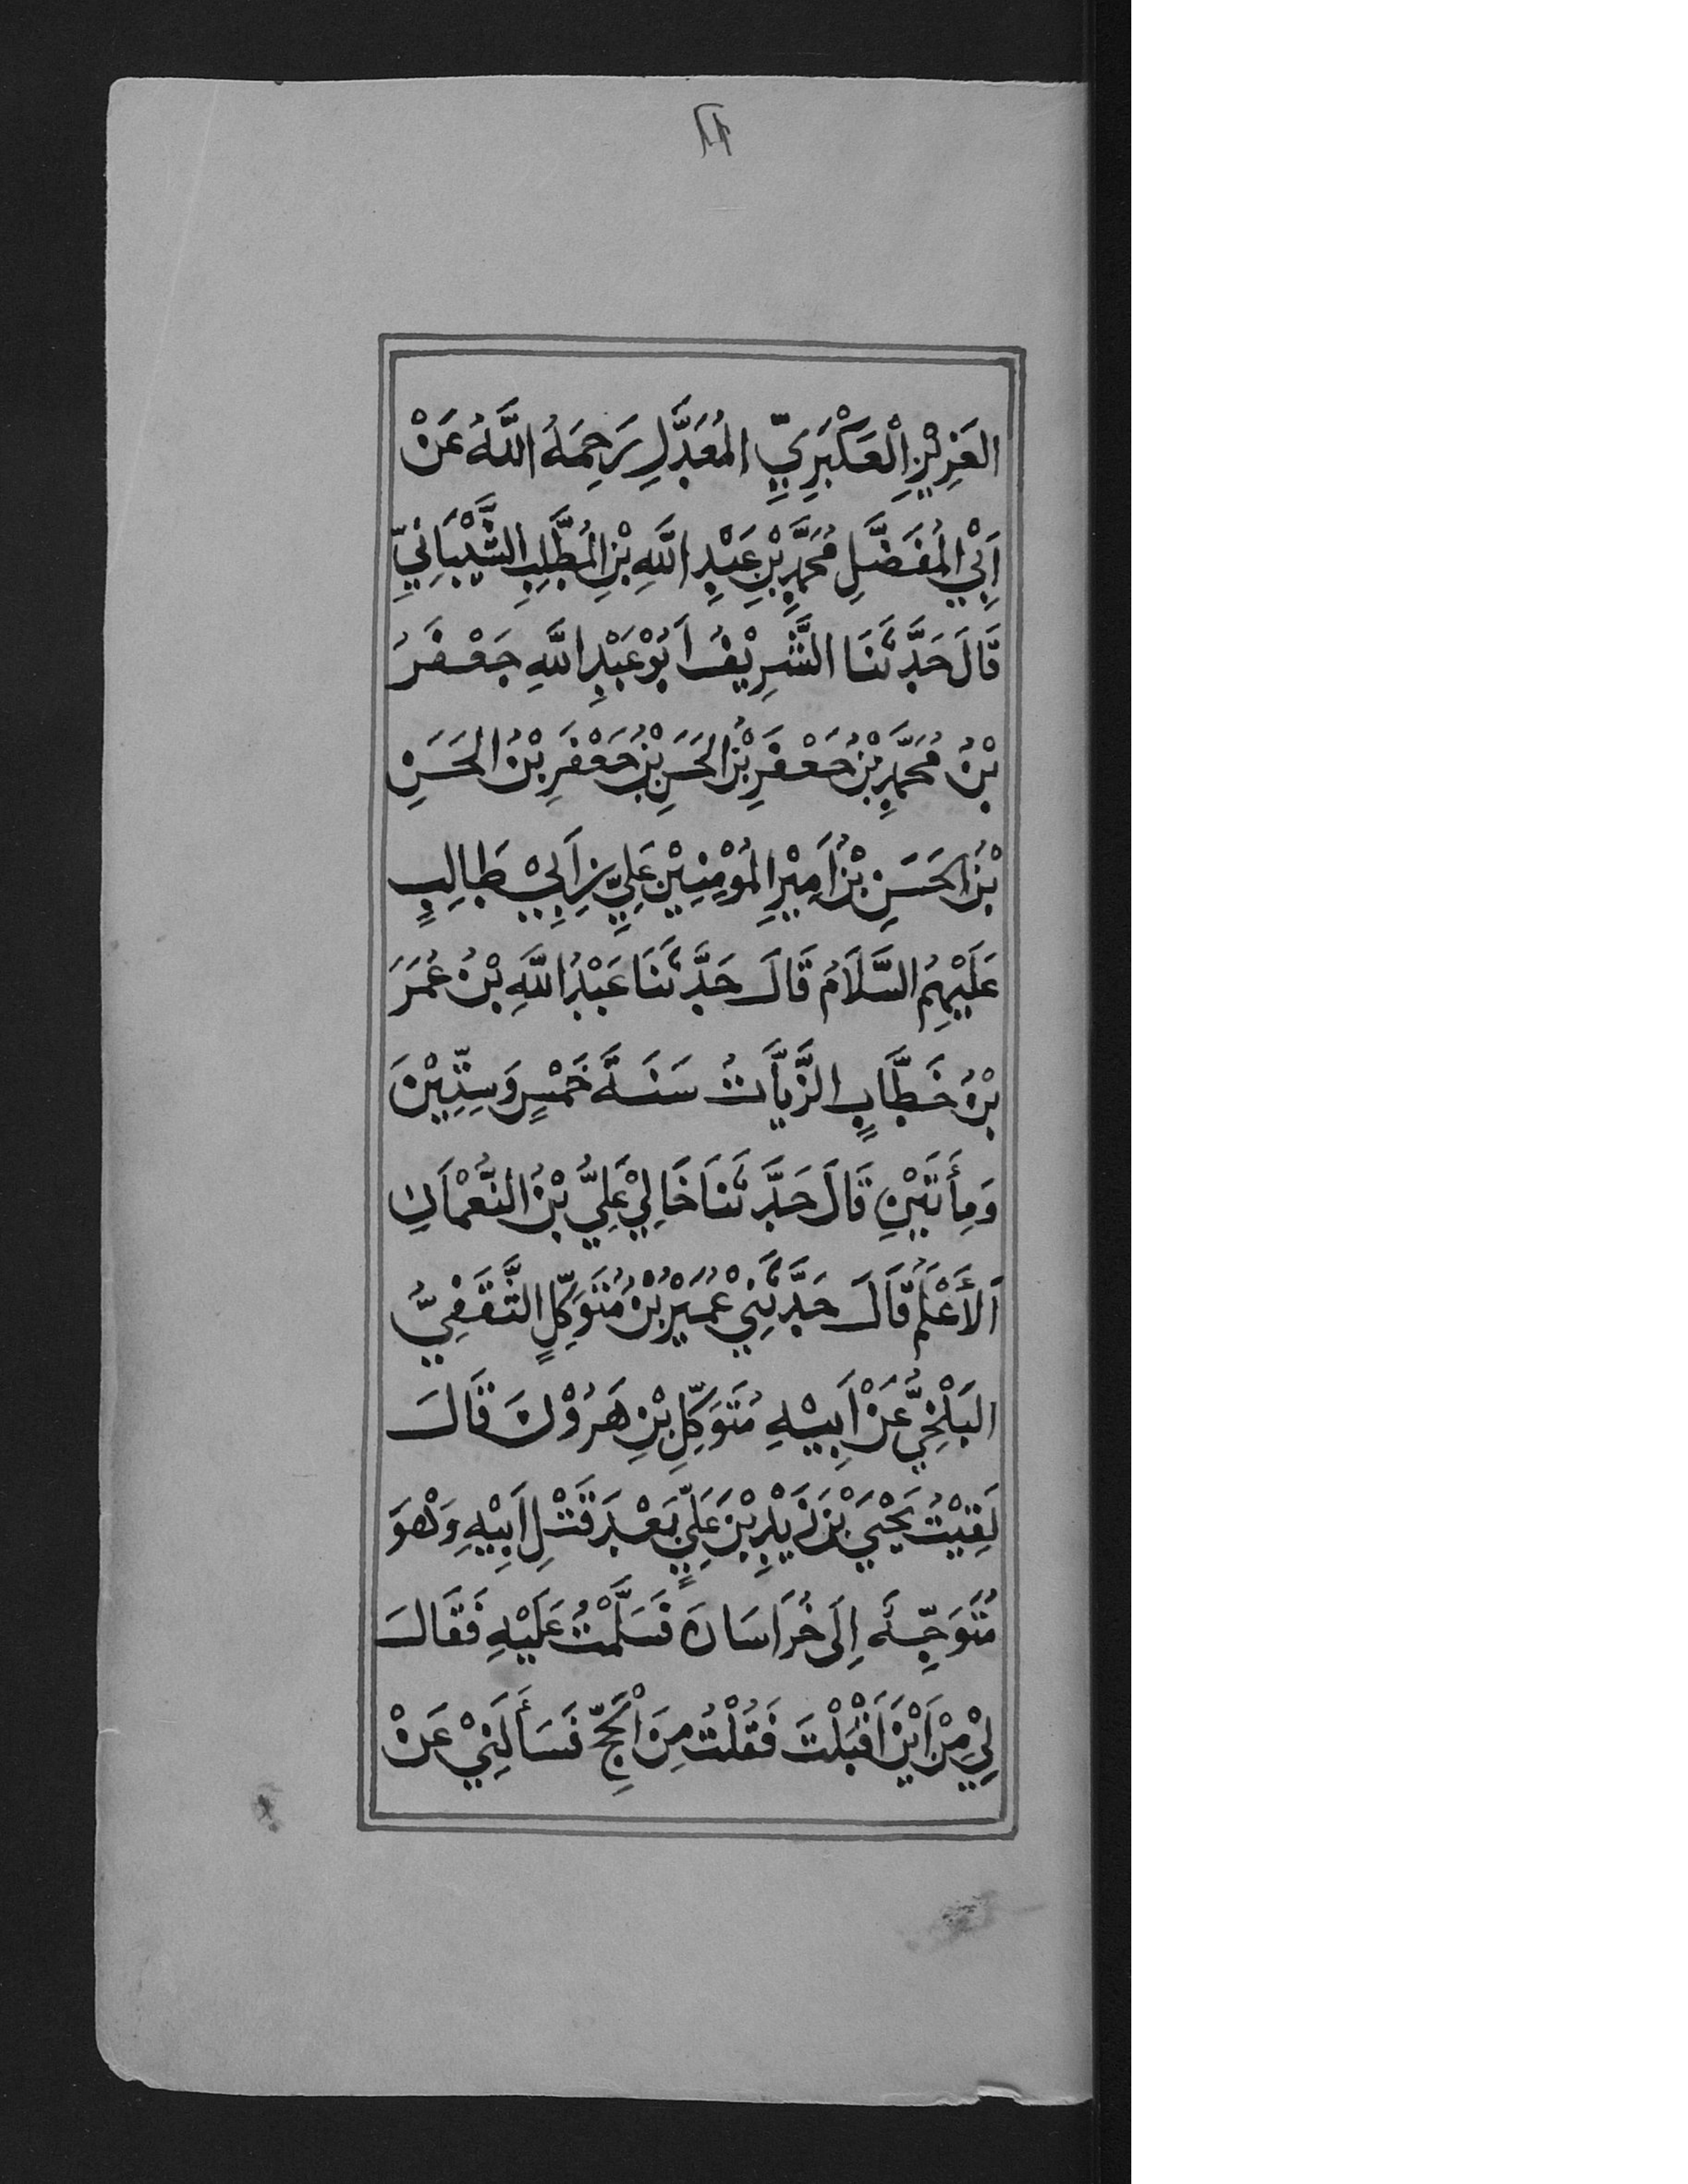 العَزِيْزِ الْعَكْبَرِيِّ المُعَدَّلِ رَحِمَهُ اللَّهُ عَنْ
اَبِي المُفَضَّلِ مُحَمَّدِ بْنِ عَبْدِ اللَّهِ بْنِ المُطَّلِبِ الشَّيْبَانِيِّ
قَالَ حَدَّثَنَا الشَّرِيْفُ اَبُوْ عَبْدِ اللَّهِ جَعْفَرُ
بْنُ مُحَمَّدِ بْنُ جَعْفَرِ بْنُ الحَسَنِ بْنُ جَعْفَرِ بْنُ الحَسَنِ
بْنُ الحَسَنِ بْنُ اَمِيْرِ المُوْمِنِيْنَ عَلِيِّ بْنِ اَبِيْ طَالِبٍ
عَلَيْهِمُ السَّلَامُ قَالَ حَدَّثَنَا عَبْدُ اللَّهِ بْنُ عُمَرَ
بْنُ خَطَّابٍ الزَّيَّاتُ سَنَةَ خَمْسٍ وَسِتِّيْنَ
وَمِأَتَيْنِ قَالَ حَدَّثَنَا خَالِيْ عَلِيُّ بْنُ النُّعْمَانِ
اَلأَعْلَمُ قَالَ حَدَّثَنِيْ عُمَيْرُ بْنُ مُتَوَكِّلٍ الثَّقَفِيُّ
البَلْخِيُّ عَنْ اَبِيْهِ مُتَوَكِّلِ بْنِ هَرُوْنَ قَالَ
لَقِيْتُ يَحْيَي بْنَ زَيْدِ بْنَ عَلِيٍّ بَعْدَ قَتْلِ اَبِيْهِ وَهُوَ
مُتَوَجِّهٌ اِلَى خُرَاسَانَ فَسَلَّمْتُ عَلَيْهِ فَقَالَ
لِيْ مِنْ اَيْنَ اَقْبَلْتَ فَقُلْتُ مِنَ الْحَجِّ فَسَأَلَنِيْ عَنْ